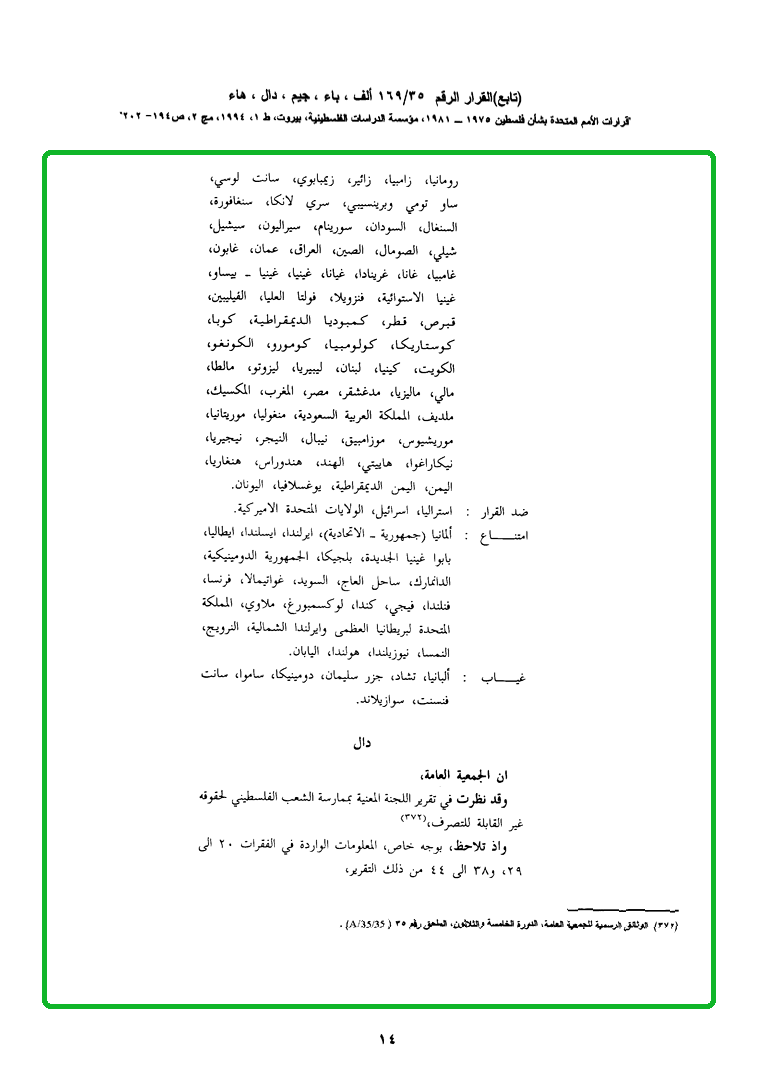 (تابع)القرار الرقم ١٦٩/٣٥ ألف ، باء ، جيم ، دال ، هاء
"قرارات الأمم المتحدة بشأن فلسطين ١٩٧٥ ــ ١٩٨١، مؤسسة الدراسات الفلسطينية، بيروت، ط ١، ١٩٩٤، مج ٢، ص١٩٤- ٢٠٢"
رومانيا، زامبيا، زائير، زيمبابوي، سانت لوسي،
ساو تومي وبرينسيبي، سري لانكا، سنغافورة،
السنغال، السودان، سورينام، سيراليون، سيشيل،
شيلي، الصومال، الصين، العراق، عمان، غابون،
غامبيا، غانا، غرينادا، غيانا، غينيا، غينيا ـ بيساو،
غينيا الاستوائية، فنزويلا، فولتا العليا، الفيليبين،
قبرص، قطر، كمبوديا الديمقراطية، كوبا،
كوستاريكا، كولومبيا، كومورو، الكونغو،
الكويت، كينيا، لبنان، ليبيريا، ليزوتو، مالطا،
مالي، ماليزيا، مدغشقر، مصر، المغرب، المكسيك،
ملديف، المملكة العربية السعودية، منغوليا، موريتانيا،
موريشيوس، موزامبيق، نيبال، النيجر، نيجيريا،
نيكاراغوا، هاييتي، الهند، هندوراس، هنغاريا،
اليمن، اليمن الديمقراطية، يوغسلافيا، اليونان.
ضد القرار : استراليا، اسرائيل، الولايات المتحدة الاميركية.
امتنـــــاع : ألمانيا (جمهورية ـ الاتحادية)، ايرلندا، ايسلندا، ايطاليا،
بابوا غينيا الجديدة، بلجيكا، الجمهورية الدومينيكية،
الدانمارك، ساحل العاج، السويد، غواتيمالا، فرنسا،
فنلندا، فيجي، كندا، لوكسمبورغ، ملاوي، المملكة
المتحدة لبريطانيا العظمى وايرلندا الشمالية، النرويج،
النمسا، نيوزيلندا، هولندا، اليابان.
غيـــــاب : ألبانيا، تشاد، جزر سليمان، دومينيكا، ساموا، سانت
فنسنت، سوازيلاند.
دال
ان الجمعية العامة،
وقد نظرت في تقرير اللجنة المعنية بممارسة الشعب الفلسطيني لحقوقه
غير القابلة للتصرف،(٣٧٢)
واذ تلاحظ، بوجه خاص، المعلومات الواردة في الفقرات ٢٠ الى
٢٩، و٣٨ الى ٤٤ من ذلك التقرير،
(٣٧٢) الوثائق الرسمية للجمعية العامة، الدورة الخامسة والثلاثون، الملحق رقم ٣٥ ( A/35/35) .
١٤